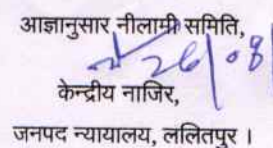 आज्ञानुसार नीलामी समिति,
26/08
केन्द्रीय नाजिर,
जनपद न्यायालय, ललितपुर ।